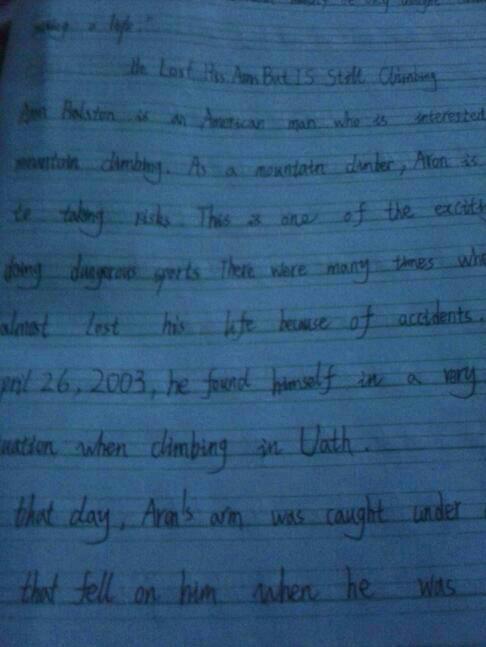 a life."
He Lost His Arm But IS Still Climbing
Aron Ralston is an American man who is interested
mountain climbing. As a mountain climber, Aron is
to taking risks. This is one of the exciti
doing dangerous sports There were many times whe
almost lost his life because of accidents.
pril 26, 2003, he found himself in a very
uation when climbing in Utah.
that day, Aron's arm was caught under
that fell on him when he was